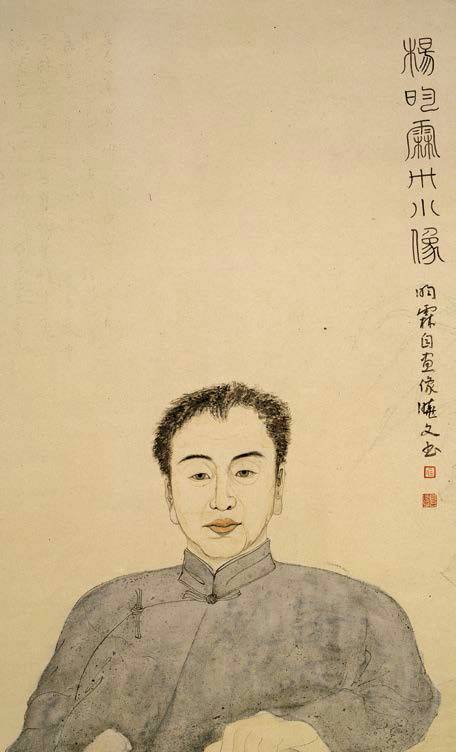 楊昀霖卅小像
昀霖自画像文书